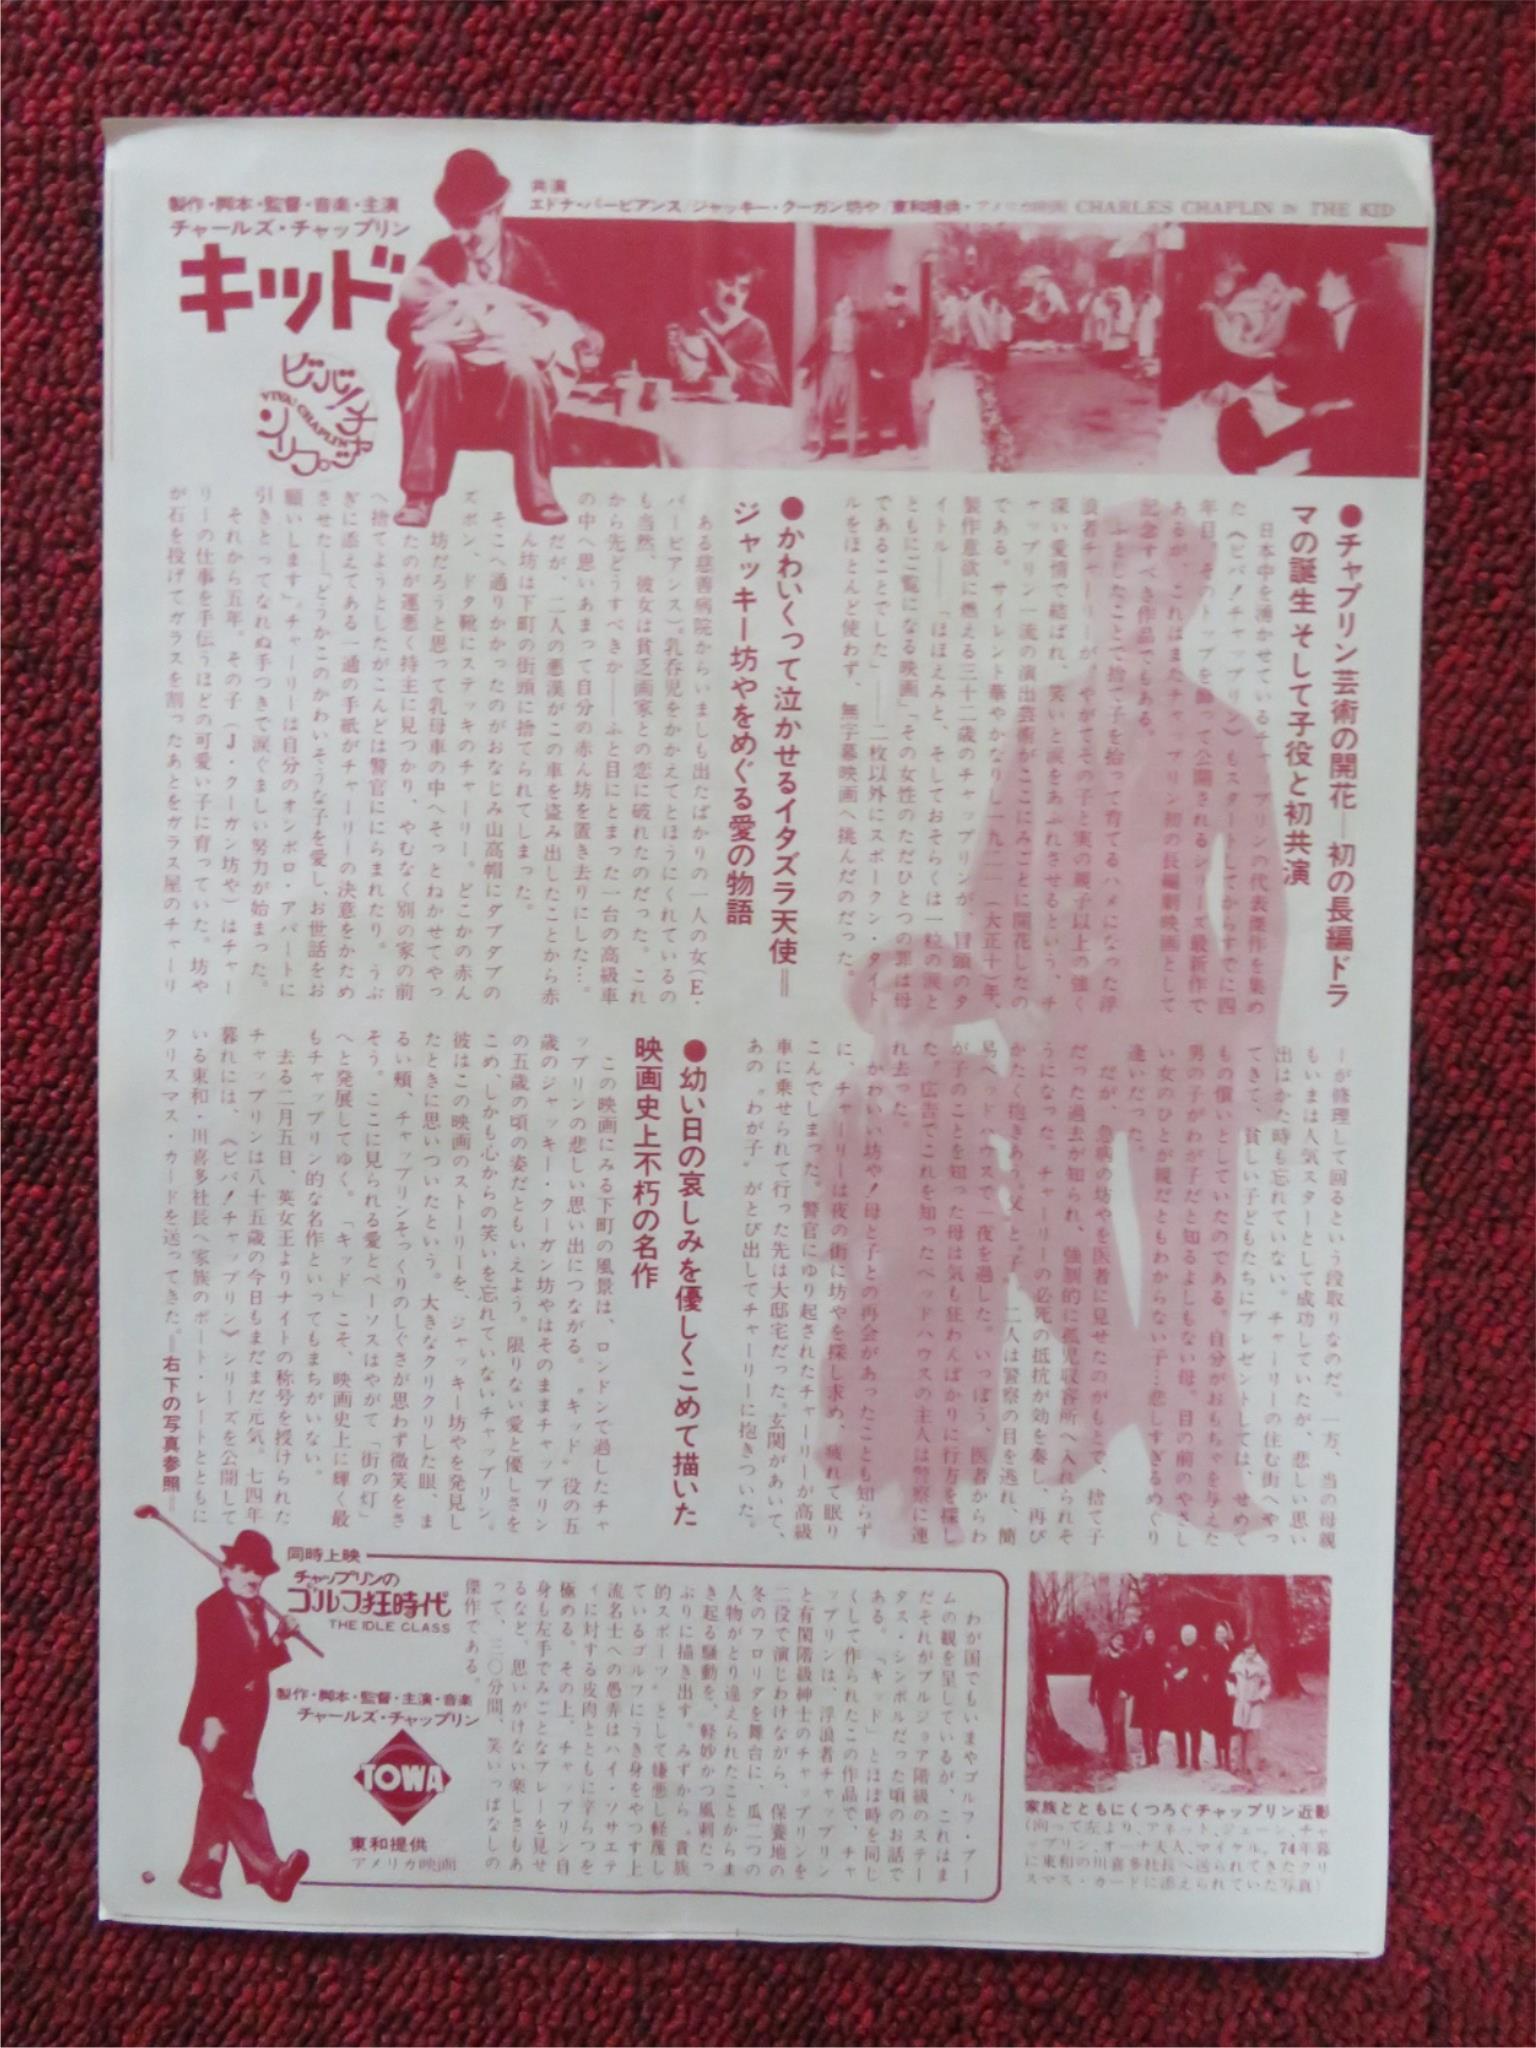 製作・脚本・監督・音楽・主演
チャールズ・チャップリン
キッド
ビバ!チャップリン
VIVA! CHAPLIN
共演
エドナ・パービアンス/ジャッキー・クーガン坊や/東和提供・アメリカ映画 CHARLES CHAPLIN IN THE KID
●チャプリン芸術の開花―初の長編ドラ
マの誕生 そして子役と初共演
日本中を沸かせているチャップリンの代表傑作を集め
た《ビバ!チャップリン》もスタートしてからすでに四
年目。そのトップを飾って公開されるシリーズ最新作で
あるが、これはまたチャップリン初の長編劇映画として
記念すべき作品でもある。
ふとしたことで捨て子を拾って育てるハメになった浮
浪者チャーリーが、やがてその子と実の親子以上の強く
深い愛情で結ばれ、笑いと涙をあふれさせるという、チ
ャップリン一流の演出芸術がここにみごとに開花したの
である。サイレント華やかなりし一九二一(大正十)年、
製作意欲に燃える三十二歳のチャップリンが、冒頭のタ
イトル――「ほほえみと、そしておそらくは一粒の涙と
ともにご覧になる映画」「その女性のただひとつの罪は母
であることでした」――二枚以外にスポークン・タイト
ルをほとんど使わず、無字幕映画へ挑んだのだった。
●かわいくって泣かせるイタズラ天使=
ジャッキー坊やをめぐる愛の物語
ある慈善病院からいましも出たばかりの一人の女(E・
パービアンス)。乳呑児をかかえてとほうにくれているの
も当然、彼女は貧乏画家との恋に破れたのだった。これ
から先どうすべきか――ふと目にとまった一台の高級車
の中へ思いあまって自分の赤ん坊を置き去りにした…。
だが、二人の悪漢がこの車を盗み出したことから赤
ん坊は下町の街頭に捨てられてしまった。
そこへ通りかかったのがおなじみ山高帽にダブダブの
ズボン、ドタ靴にステッキのチャーリー。どこかの赤ん
坊だろうと思って乳母車の中へそっとねかせてやっ
たのが運悪く持主に見つかり、やむなく別の家の前
へ捨てようとしたがこんどは警官ににらまれたり。うぶ
ぎに添えてある一通の手紙がチャーリーの決意をかため
させた―「どうかこのかわいそうな子を愛し、お世話をお
願いします」。チャーリーは自分のオンボロ・アパートに
引きとってなれぬ手つきで涙ぐましい努力が始まった。
それから五年。その子(J・クーガン坊や)はチャー
リーの仕事を手伝うほどの可愛い子に育っていた。坊や
が石を投げてガラスを割ったあとをガラス屋のチャーリ
ーが修理して回るという段取りなのだ。一方、当の母親
もいまは人気スターとして成功していたが、悲しい思い
出はかた時も忘れていない。チャーリーの住む街へやっ
てきて、貧しい子どもたちにプレゼントしては、せめて
もの償いとしていたのである。自分がおもちゃを与えた
男の子がわが子だと知るよしもない母。目の前のやさし
い女のひとが親だともわからない子…悲しすぎるめぐり
逢いだった。
だが、急病の坊やを医者に見せたのがもとで、捨て子
だった過去が知れ、強制的に孤児収容所へ入れられそ
うになった。チャーリーの必死の抵抗が効を奏し、再び
かたく抱きあう〝父〟と〝子〟。二人は警察の目を逃れ、簡
易ベッドハウスで一夜を過した。いっぽう、医者からわ
が子のことを知った母は気も狂わんばかりに行方を探し
た。広告でこれを知ったベッドハウスの主人は警察に連
れ去った。
かわいい坊や!母と子との再会があったことも知らず
に、チャーリーは夜の街に坊やを探し求め、疲れて眠り
こんでしまった。警官にゆり起されたチャーリーが高級
車に乗せられて行った先は大邸宅だった。玄関があいて、
あの〝わが子〟がとび出してチャーリーに抱きついた。
●幼い日の哀しみを優しくこめて描いた
映画史上不朽の名作
この映画にみる下町の風景は、ロンドンで過したチャ
ップリンの悲しい思い出につながる。〝キッド〟役の五
歳のジャッキー・クーガン坊やはそのままチャップリン
の五歳の頃の姿だともいえよう。限りない愛と優しさを
こめ、しかも心からの笑いを忘れていないチャップリン。
彼はこの映画のストーリーを、ジャッキー坊やを発見し
たときに思いついたという。大きなクリクリした眼、ま
るい頬、チャップリンそっくりのしぐさが思わず微笑をさ
そう。ここに見られる愛とペーソスはやがて「街の灯」
へと発展してゆく。「キッド」こそ、映画史上に輝く最
もチャップリン的な名作といってもまちがいない。
去る二月五日、英女王よりナイトの称号を授けられた
チャップリンは八十五歳の今日もまだまだ元気。七四年
暮れには、《ビバ!チャップリン》シリーズを公開して
いる東和・川喜多社長へ家族のポート・レートとともに
クリスマス・カードを送ってきた。=右下の写真参照=
同時上映
チャップリンの
ゴルフ狂時代
THE IDLE CLASS
製作・脚本・監督・主演・音楽
チャールズ・チャップリン
TOWA
東和提供
アメリカ映画
わが国でもいまやゴルフ・ブー
ムの観を呈しているが、これはま
だそれがブルジョア階級のステー
タス・シンボルだった頃のお話で
ある。「キッド」とほぼ時を同じ
くして作られたこの作品で、チャ
ップリンは、浮浪者チャップリン
と有閑階級紳士のチャップリンを
二役で演じわけながら、保養地の
冬のフロリダを舞台に、瓜二つの
人物がとり違えられたことからま
き起る騒動を、軽妙かつ風刺たっ
ぷりに描き出す。みずから〝貴族
的スポーツ〟として嫌悪し軽蔑し
ているゴルフにうき身をやつす上
流名士への愚弄はハイ・ソサエテ
ィに対する皮肉とともに辛らつを
極める。その上、チャップリン自
身も左手でみごとなプレーを見せ
るなど、思いがけない楽しさもあ
って、三〇分間、笑いっぱなしの
傑作である。
家族とともにくつろぐチャップリン近影
(向って左より、アネット、ジェーン、チャ
ップリン、オーナ夫人、マイケル。74年暮
に東和の川喜多社長へ送られてきたクリ
スマス・カードに添えられていた写真)